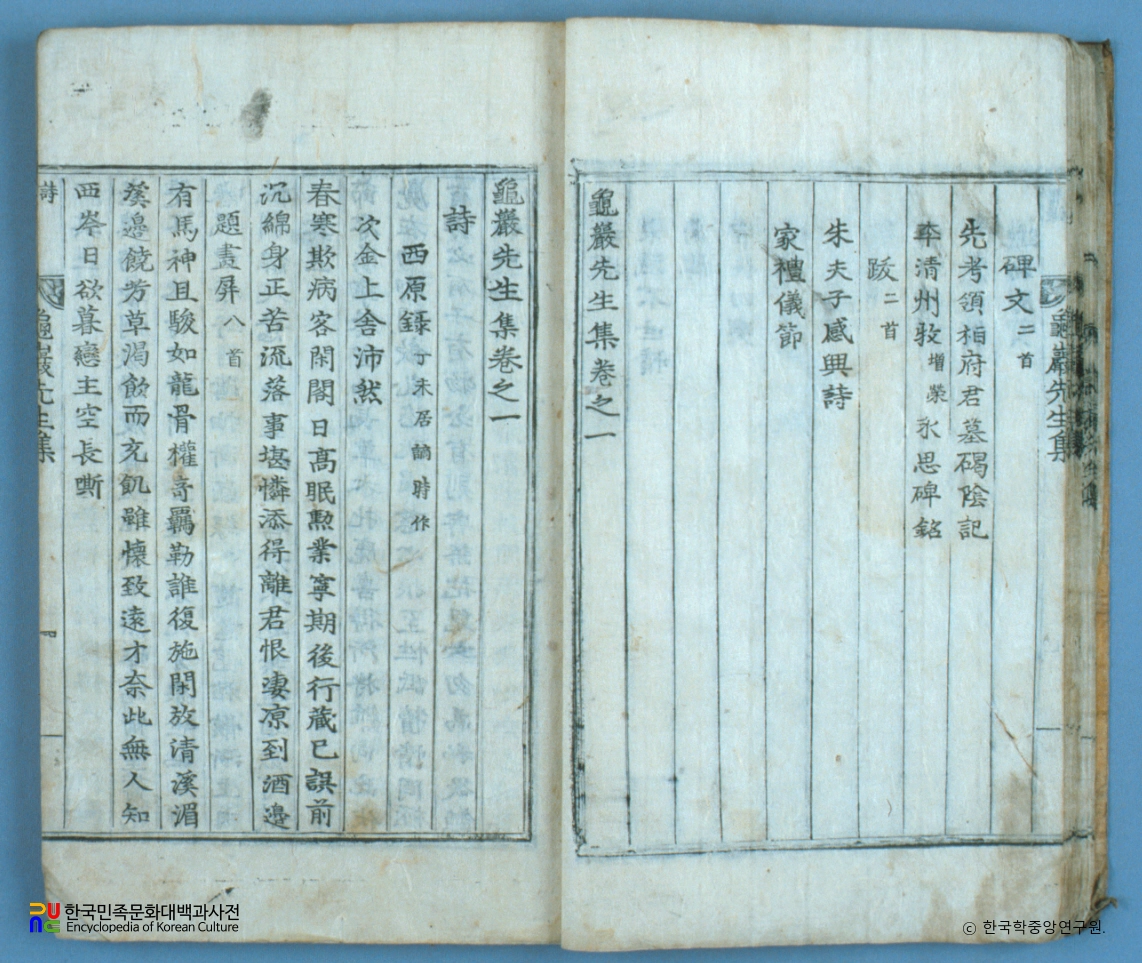 龜巖先生集
碑文二首
先考領相府君墓碣陰記
李清州致增蒙永思碑銘
跋二首
朱夫子感興詩
家禮儀節
龜巖先生集卷之一
龜巖先生集卷之一
詩
西原錄丁未居謫時作
次金上舍沛然
春寒欺病客閑閤日高眠勲業寧期後行藏已誤前
沉綿身正苦流落事堪憐添得離君恨凄凉到酒邊
題畫屏八首
有馬神且駿如龍骨權奇羈勒誰復施閑放清溪湄
溪邊饒芳草渴飲而充飢雖懷致遠才奈此無人知
西岑日欲暮戀主空長嘶
詩
龜巖先生集
한국민족문화대백과사전
Encyclopedia of Korean Culture
© 한국학중앙연구원.